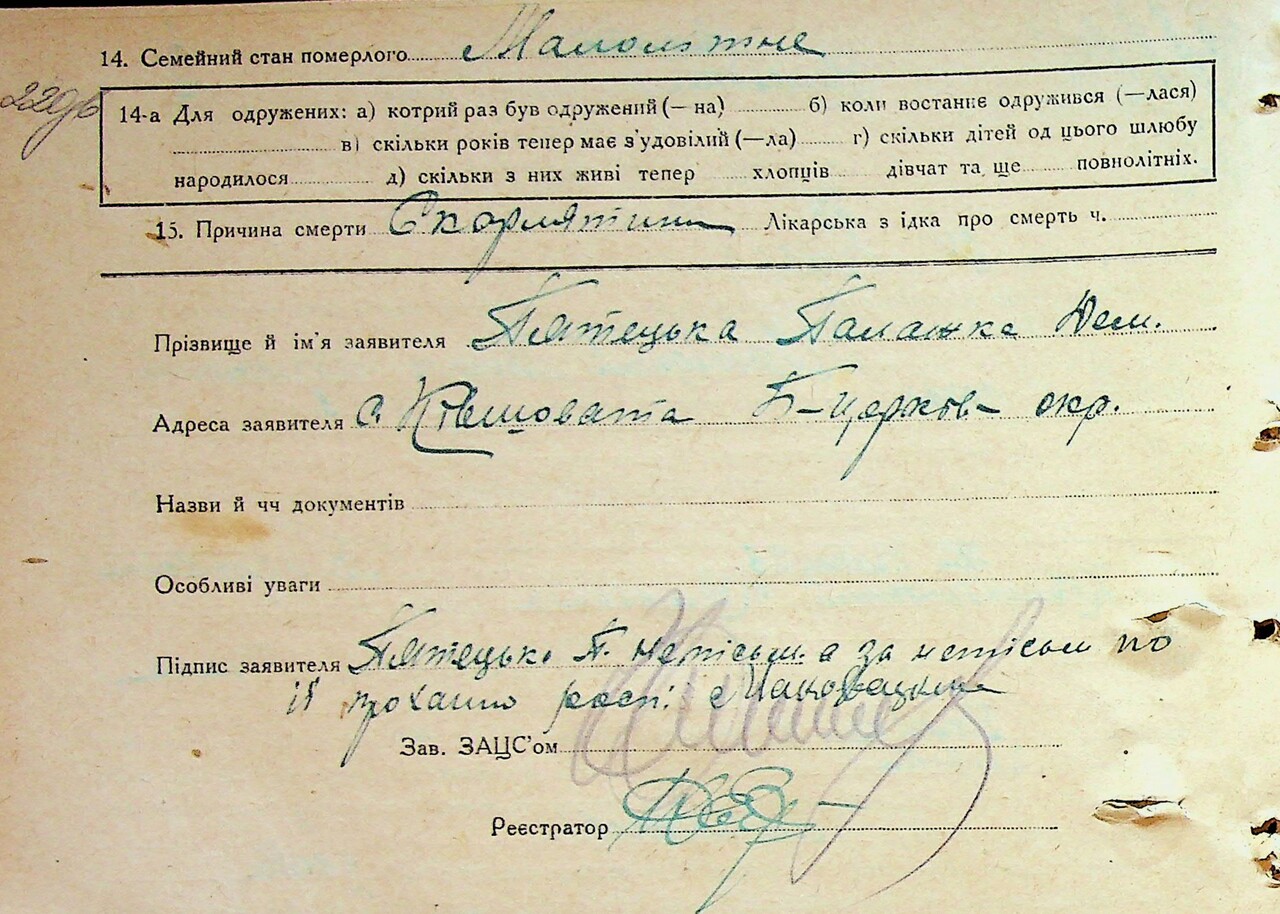 14. Семейний стан померлого Малолітнє
14-а Для одружених: а) котрий раз був одружений (—на) б) коли востаннє одружився (—лася)
в) скільки років тепер має з'удовілий (—ла) г) скільки дітей од цього шлюбу
народилося д) скільки з них живі тепер хлопців дівчат та ще повнолітніх.
15. Причина смерти Скорлятина Лікарська з ідка про смерть ч.
Прізвище й ім'я заявителя Пятецька Палажка Дем.
Адреса заявителя с. Ківшовата Б-церков- окр.
Назви й чч документів
Особливі уваги
Підпис заявителя Пятецька П. неписьм. а за неписьм по
її проханню расп:
Зав. ЗАЦС'ом
Реєстратор